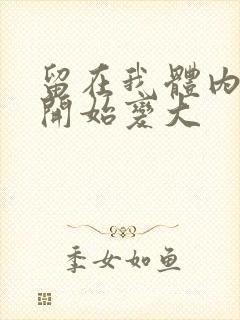 留在我體內
開始變大
季女如魚